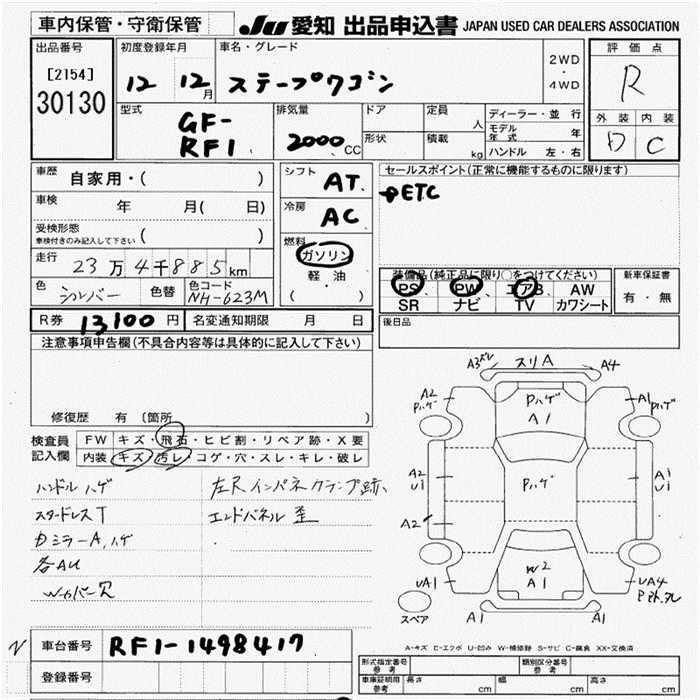 車内保管・守衛保管
JU 愛知 出品申込書 JAPAN USED CAR DEALERS ASSOCIATION
出品番号
[2154]
30130
初度登録年月
12 12月
車名・グレード
ステープワゴン
2WD
・
4WD
評価点
R
外装 内装
D C
型式
GF-
RF1
排気量
2000 CC
ドア
形状
定員 人
積載 kg
ディーラー・並行
モデル年式 年
ハンドル 左・右
車歴 自家用・( )
車検 年 月( 日)
受検形態
車検付きのみ記入して下さい ( )
走行 23万4千885km
色 シルバー 色替 色コード NH-623M
シフト AT
冷房 AC
燃料
ガソリン
軽・油
( )
セールスポイント(正常に機能するものに限ります)
ETC
装備品(純正品に限り○をつけてください)
PS PW エアB AW
SR ナビ TV カワシート
新車保証書
有・無
R券 13100円 名変通知期限 月 日
後日品
注意事項申告欄(不具合内容等は具体的に記入して下さい)
修復歴 有 〔箇所
検査員
記入欄
FW キズ・飛石・ヒビ割・リペア跡・X要
内装 キズ・汚レ・コゲ・穴・スレ・キレ・破レ
ハンドルハゲ
スタードレスT
カミラーA、ハゲ
各AU
Wカバー欠
左Rインパネクランプ跡、
エンドパネル歪
A3ズレ スリA A4
A2
Pハゲ
Pハゲ
A1
A1
Pハゲ
A2
U1
Pハゲ
A1
U1
A2
UA1
W2
A1
UA4
スペア
A1 A1
A-キズ E-エクボ U-凹み W-補修跡 S-サビ C-腐食 XX-交換済
車台番号 RF1-1498417
登録番号
型式指定番号
参考
類別区分番号
参考
車庫証明用
参考
長さ cm 幅 cm 高さ cm